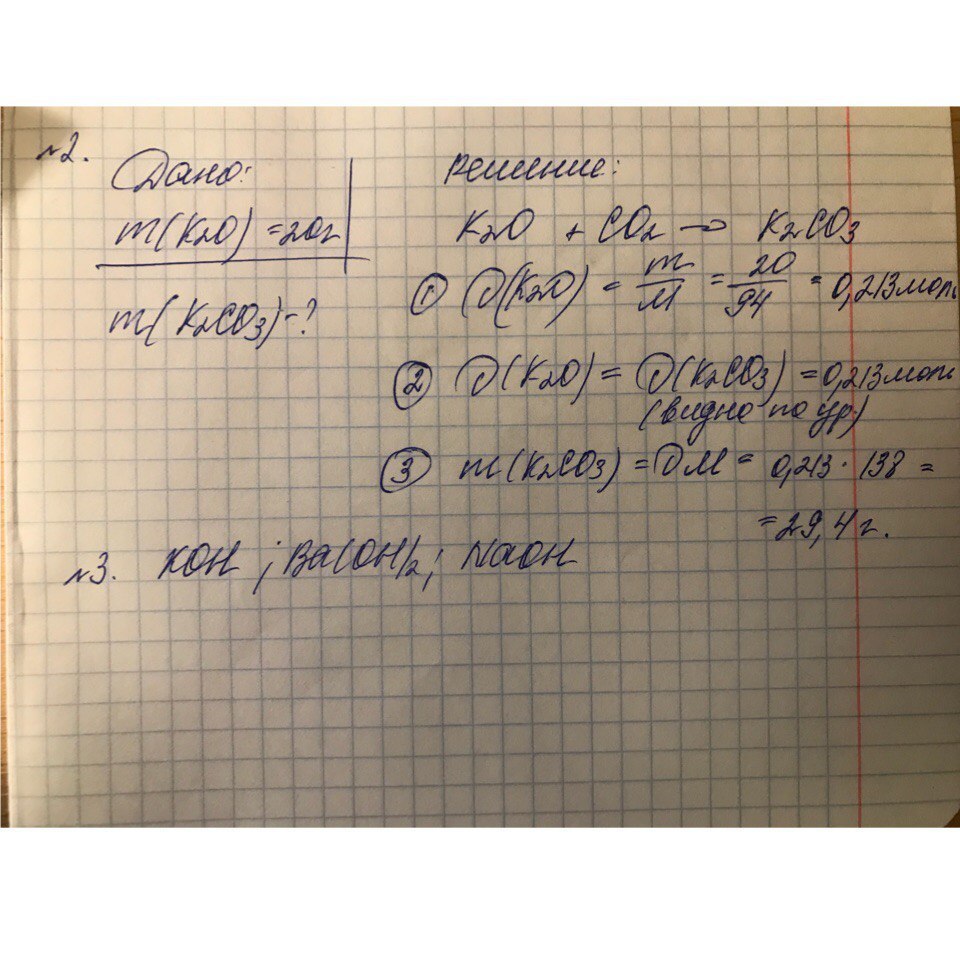 №2.
Дано:
m(K2O) = 20г
m(K2CO3) - ?
Решение:
K2O + CO2 → K2CO3
① ν(K2O) = m/M = 20/94 = 0,213 моль
② ν(K2O) = ν(K2CO3) = 0,213 моль
(видно по ур)
③ m(K2CO3) = νM = 0,213 · 138 =
= 29,4 г.
№3. KOH ; Ba(OH)2 ; NaOH